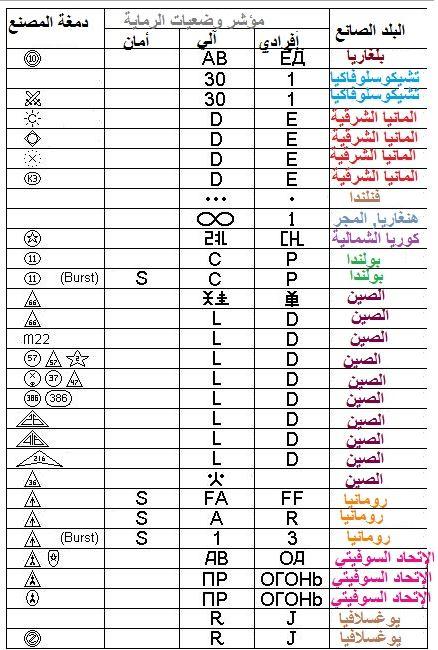 البلد الصانع مؤشر وضعيات الرماية دمغة المصنع
إفرادي آلي أمان
بلغاريا ЕД АВ 10
تشيكوسلوفاكيا 1 30
تشيكوسلوفاكيا 1 30
المانيا الشرقية E D
المانيا الشرقية E D
المانيا الشرقية E D
المانيا الشرقية E D K3
فنلندا . ...
هنغاريا, المجر 1 ∞
كوريا الشمالية
بولندا P C 11
بولندا P C S (Burst) 11
الصين 66
الصين D L 66
الصين D L M22
الصين D L 57
الصين D L 37
الصين D L 386 386
الصين D L
الصين D L
الصين D L 216
الصين 36
رومانيا FF FA S
رومانيا R A S
رومانيا 3 1 S (Burst)
الإتحاد السوفيتي ОД АВ
الإتحاد السوفيتي ОГОНЬ ПР
الإتحاد السوفيتي ОГОНЬ ПР
يوغسلافيا J R
يوغسلافيا J R